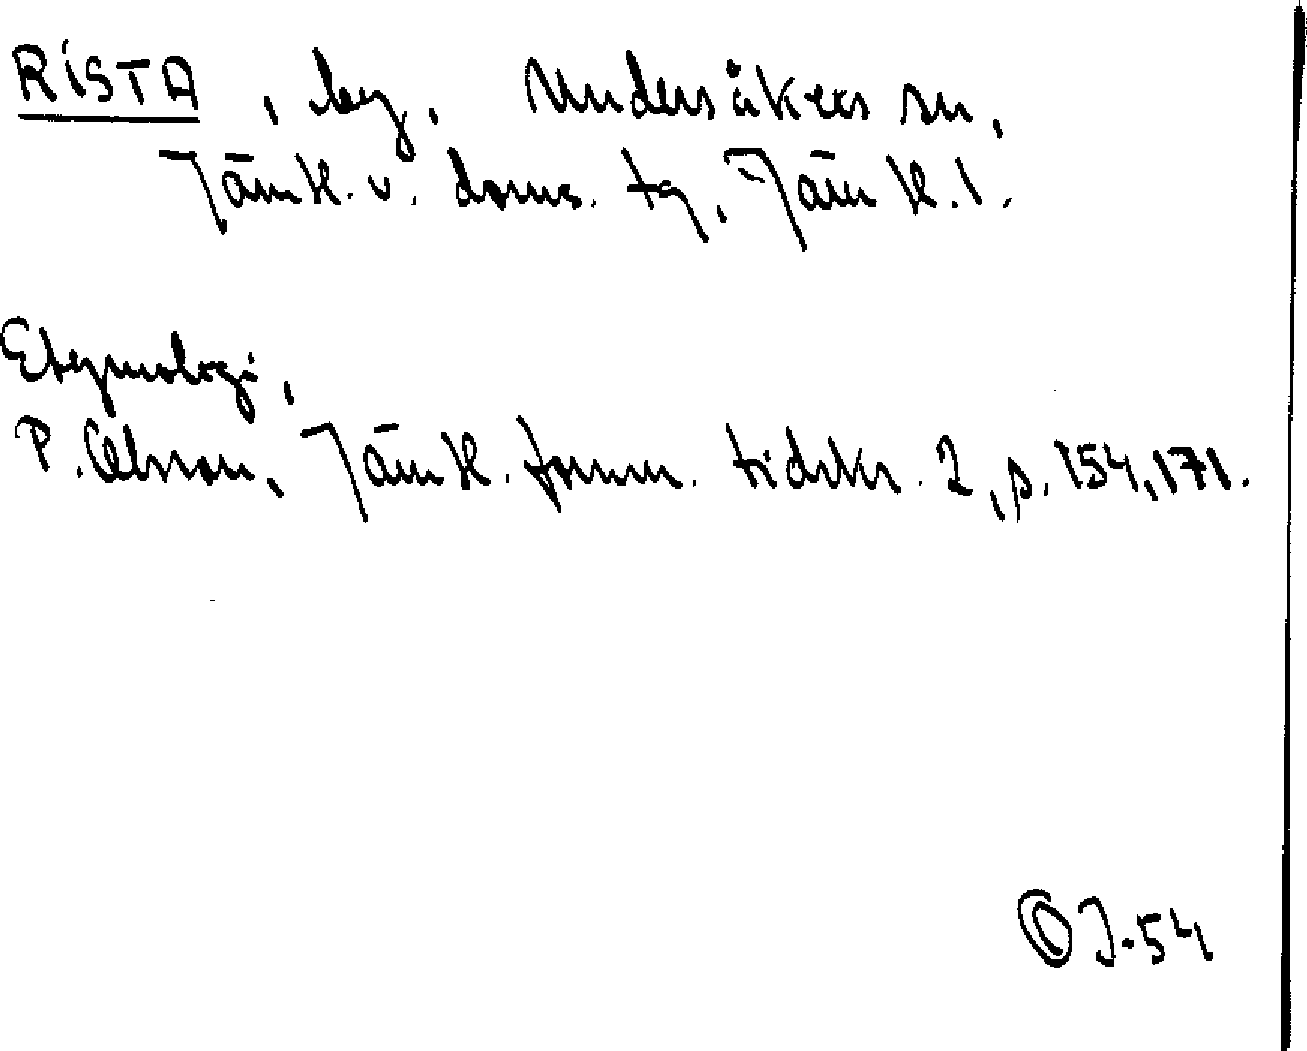 RISTA, by, Undersåkers sn,
Jämtl. v. doms. tg, Jämtl. l.
Etymologi,
P. Olsson, Jämtl. fornm. tidskr. 2, s. 154, 171.
OJ-54